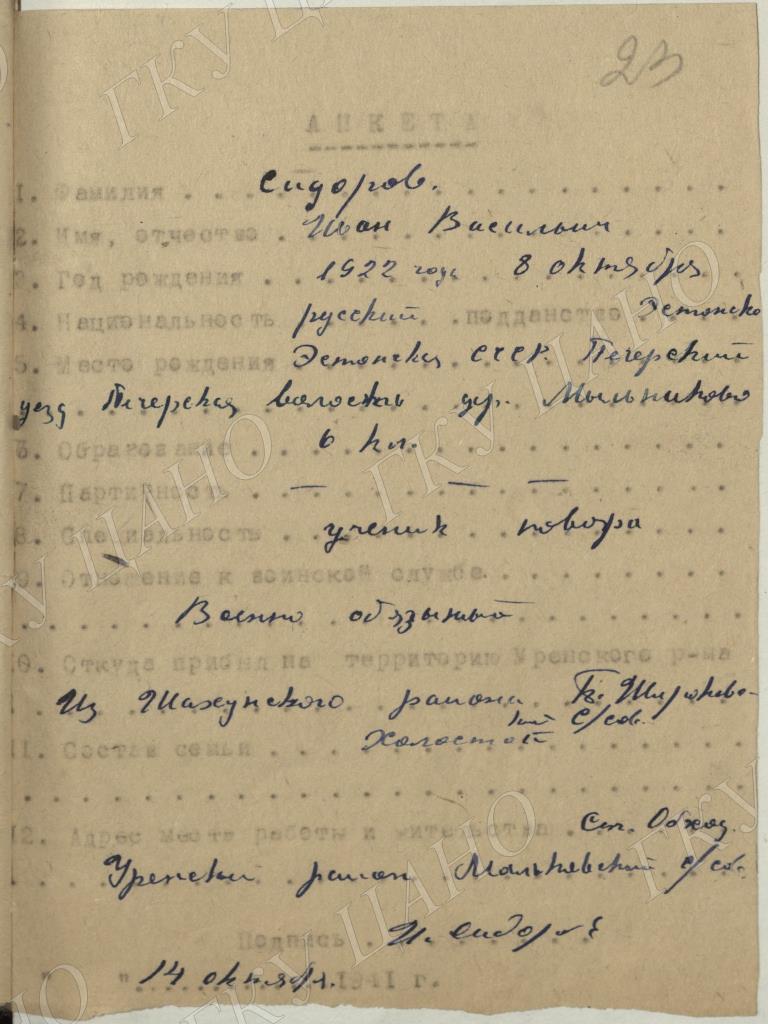 23
АНКЕТА
1. Фамилия . . . Сидоров.
2. Имя, отчество . Иван Васильич
3. Год рождения . . 1922 года 8 октября
4. Национальность русский . подданство Эстонско
5. Место рождения Эстонская СССР. Печерский
уезд Печерская волость дер. Мыльниково
6. Образование . . . 6 кл.
7. Партийность . — — —
8. Специальность . ученик повора
9. Отношение к воинской службе . . .
Военно обязыный
10. Откуда прибыл на территорию Уренского р-на
Из Шахунского района
с/сов.
11. Состав семьи . . . Холостой
12. Адрес места работы и жительства . Ст. Обход.
Уренский район Мальковский с/сов.
Подпись . И. Сидоров
" " 14 октября. 1941 г.
ГКУ ЦАНО